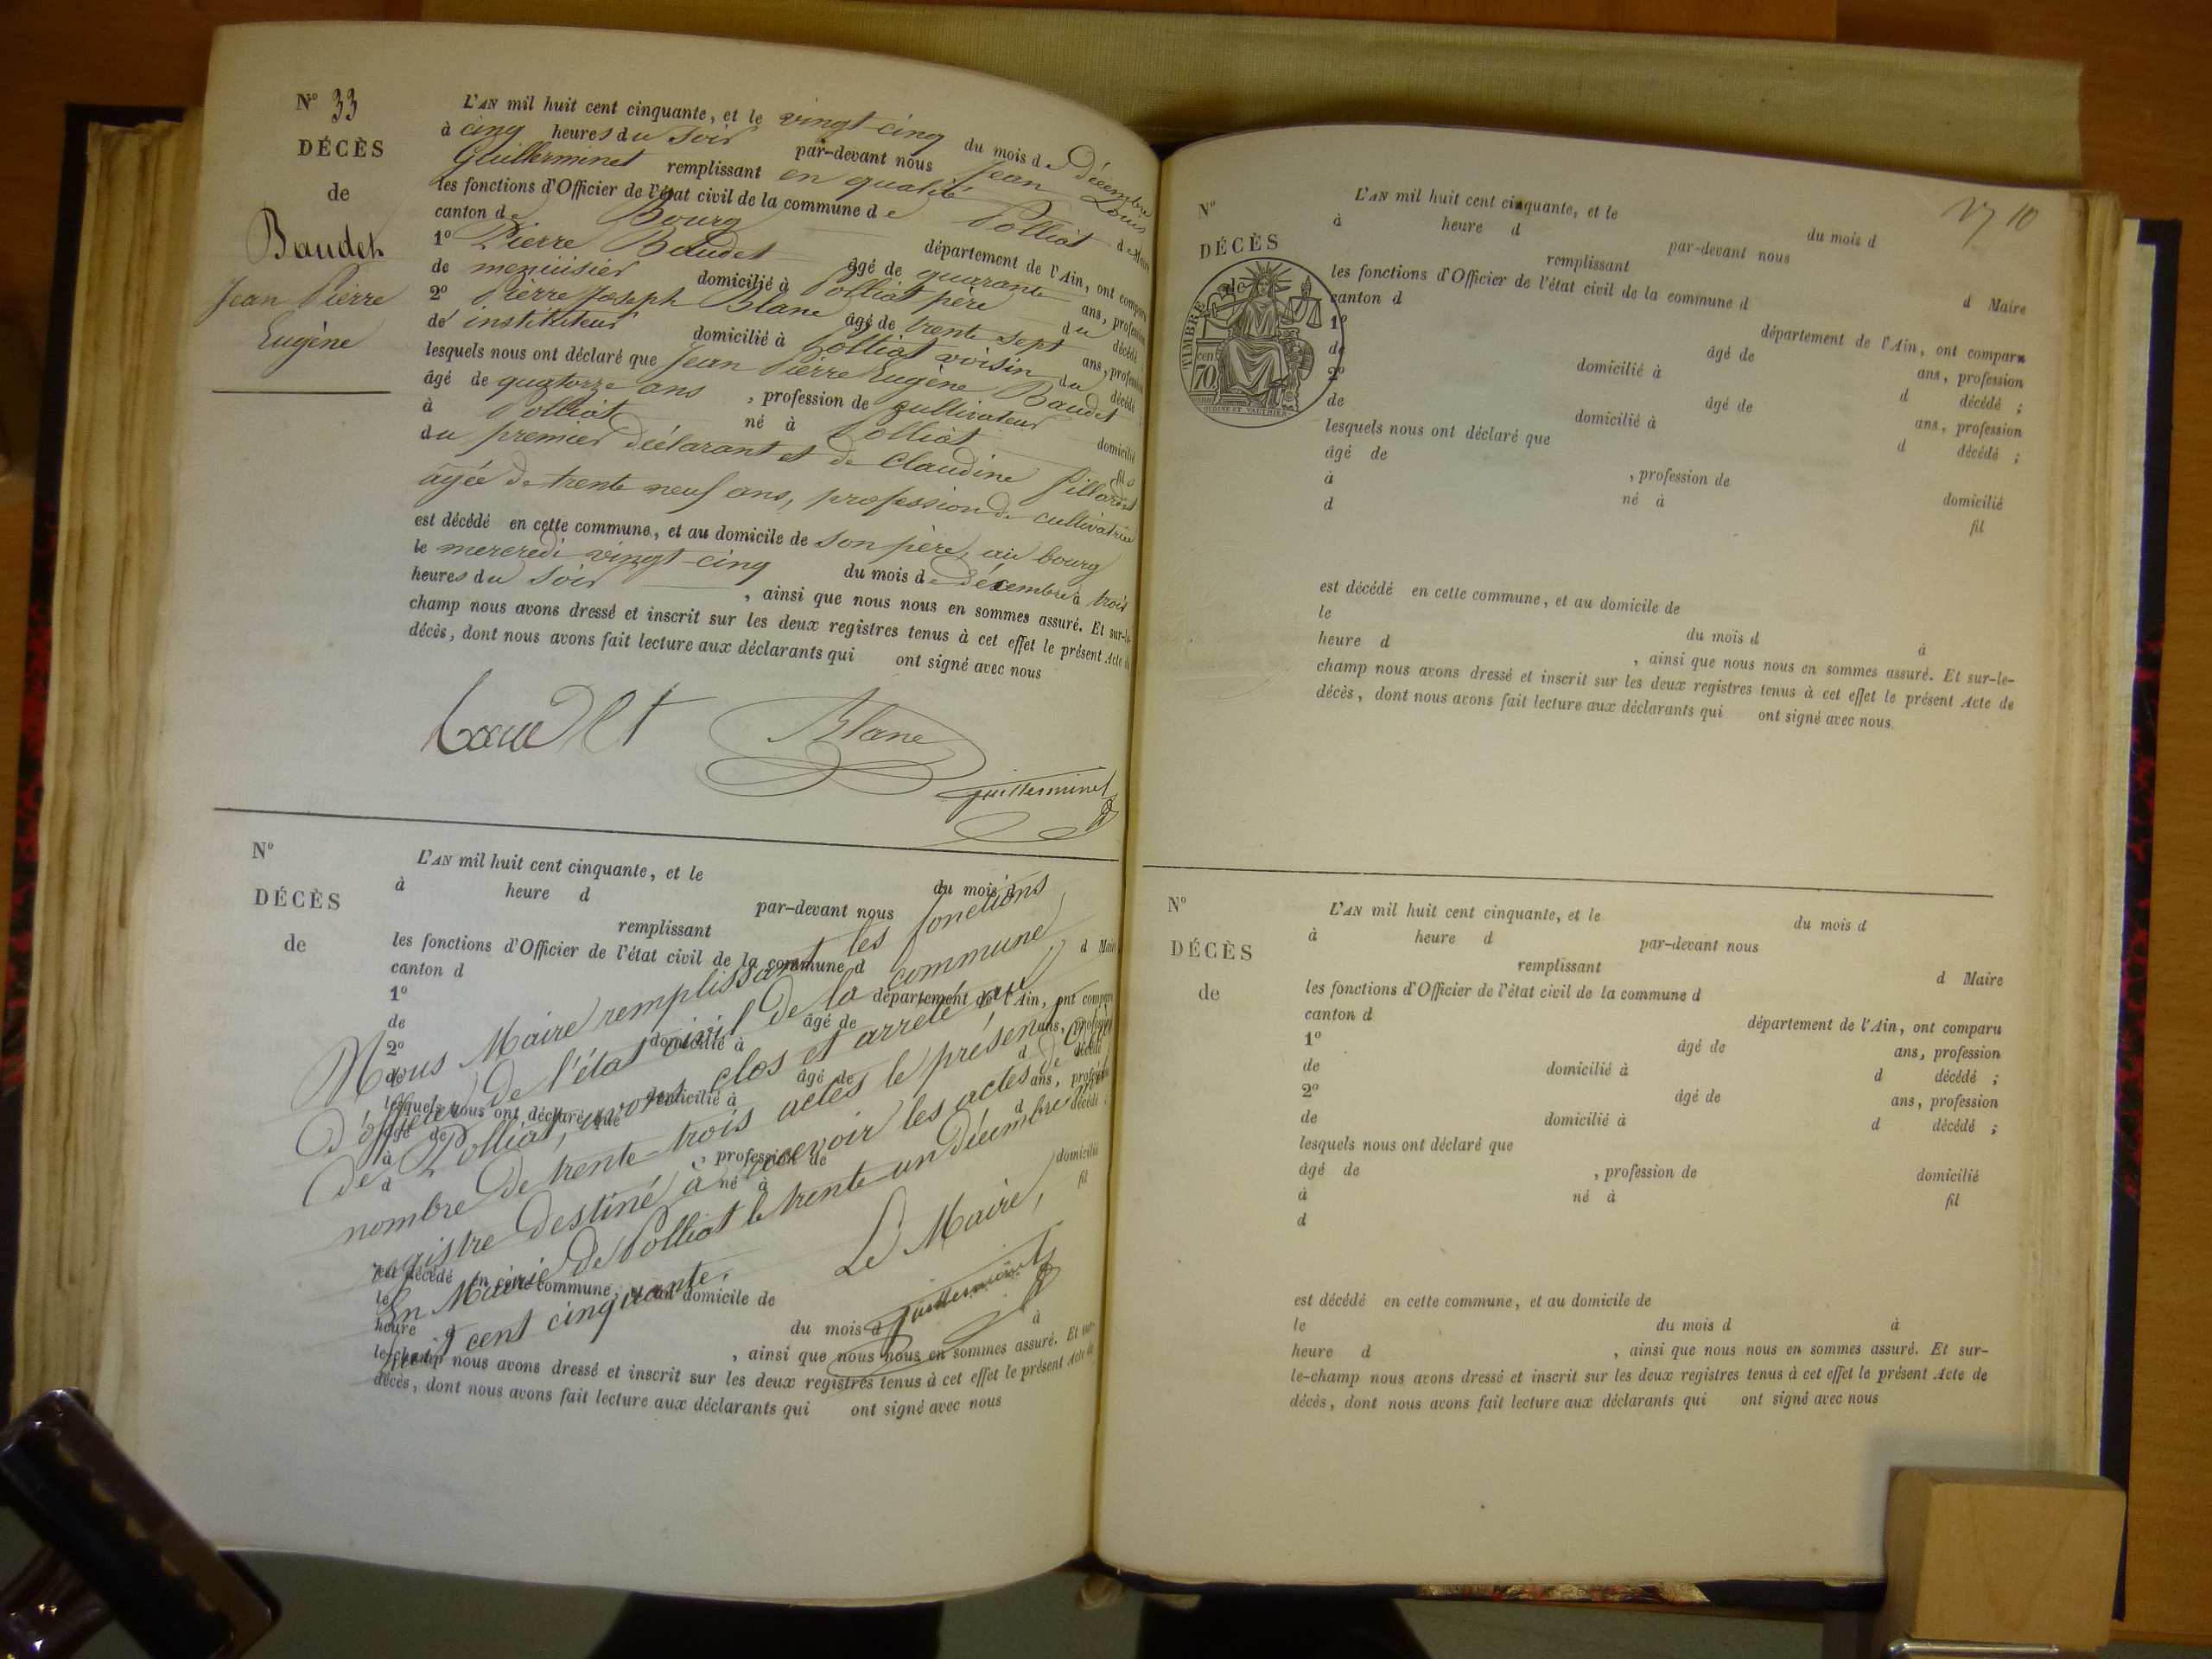 N° 33
DÉCÈS
de
Baudet
Jean Pierre
Eugène
L'AN mil huit cent cinquante, et le vingt-cinq du mois de Décembre
à cinq heures du soir par-devant nous Jean Louis
Guillerminet remplissant en qualité de Maire
les fonctions d'Officier de l'état civil de la commune de Polliat
canton de Bourg département de l'Ain, ont comparu
1° Pierre Baudet âgé de quarante ans, profession
de menuisier domicilié à Polliat père du décédé ;
2° Pierre Joseph Blanc âgé de trente sept ans, profession
de instituteur domicilié à Polliat voisin du décédé
lesquels nous ont déclaré que Jean Pierre Eugène Baudet
âgé de quatorze ans , profession de cultivateur domicilié
à Polliat né à Polliat fils
du premier déclarant et de Claudine
agée de trente neuf ans, profession de cultivatrice
est décédé en cette commune, et au domicile de son père, au bourg
le mercredi vingt-cinq du mois de décembre à trois
heures du soir , ainsi que nous nous en sommes assuré. Et sur-le-
champ nous avons dressé et inscrit sur les deux registres tenus à cet effet le présent Acte de
décès, dont nous avons fait lecture aux déclarants qui ont signé avec nous
Baudet Blanc
guillerminet
N°
DÉCÈS
de
L'AN mil huit cent cinquante, et le du mois d
à heure d par-devant nous
remplissant d Maire
les fonctions d'Officier de l'état civil de la commune d
canton d département de l'Ain, ont comparu
1° âgé de ans, profession
de domicilié à d décédé ;
2° âgé de ans, profession
de domicilié à d décédé ;
lesquels nous ont déclaré que
âgé de , profession de domicilié
à né à fil
d
est décédé en cette commune, et au domicile de
le du mois d à
heure d , ainsi que nous nous en sommes assuré. Et sur-
le-champ nous avons dressé et inscrit sur les deux registres tenus à cet effet le présent Acte de
décès, dont nous avons fait lecture aux déclarants qui ont signé avec nous
Nous Maire remplissant les fonctions
d'officier de l'état civil de la commune
de Polliat, avons clos et arrêté au
nombre de trente-trois actes le présent
registre destiné à recevoir les actes de
En Mairie de Polliat le trente-un Décembre mil
huit cent cinquante.
Le Maire,
guillerminet
10
N°
DÉCÈS
TIMBRE
70 cen
L'AN mil huit cent cinquante, et le du mois d
à heure d par-devant nous
remplissant d Maire
les fonctions d'Officier de l'état civil de la commune d
canton d département de l'Ain, ont comparu
1° âgé de ans, profession
de domicilié à d décédé ;
2° âgé de ans, profession
de domicilié à d décédé ;
lesquels nous ont déclaré que
âgé de , profession de domicilié
à né à fil
d
est décédé en cette commune, et au domicile de
le du mois d à
heure d , ainsi que nous nous en sommes assuré. Et sur-le-
champ nous avons dressé et inscrit sur les deux registres tenus à cet effet le présent Acte de
décès, dont nous avons fait lecture aux déclarants qui ont signé avec nous.
N°
DÉCÈS
de
L'AN mil huit cent cinquante, et le du mois d
à heure d par-devant nous
remplissant d Maire
les fonctions d'Officier de l'état civil de la commune d
canton d département de l'Ain, ont comparu
1° âgé de ans, profession
de domicilié à d décédé ;
2° âgé de ans, profession
de domicilié à d décédé ;
lesquels nous ont déclaré que
âgé de , profession de domicilié
à né à fil
d
est décédé en cette commune, et au domicile de
le du mois d à
heure d , ainsi que nous nous en sommes assuré. Et sur-
le-champ nous avons dressé et inscrit sur les deux registres tenus à cet effet le présent Acte de
décès, dont nous avons fait lecture aux déclarants qui ont signé avec nous